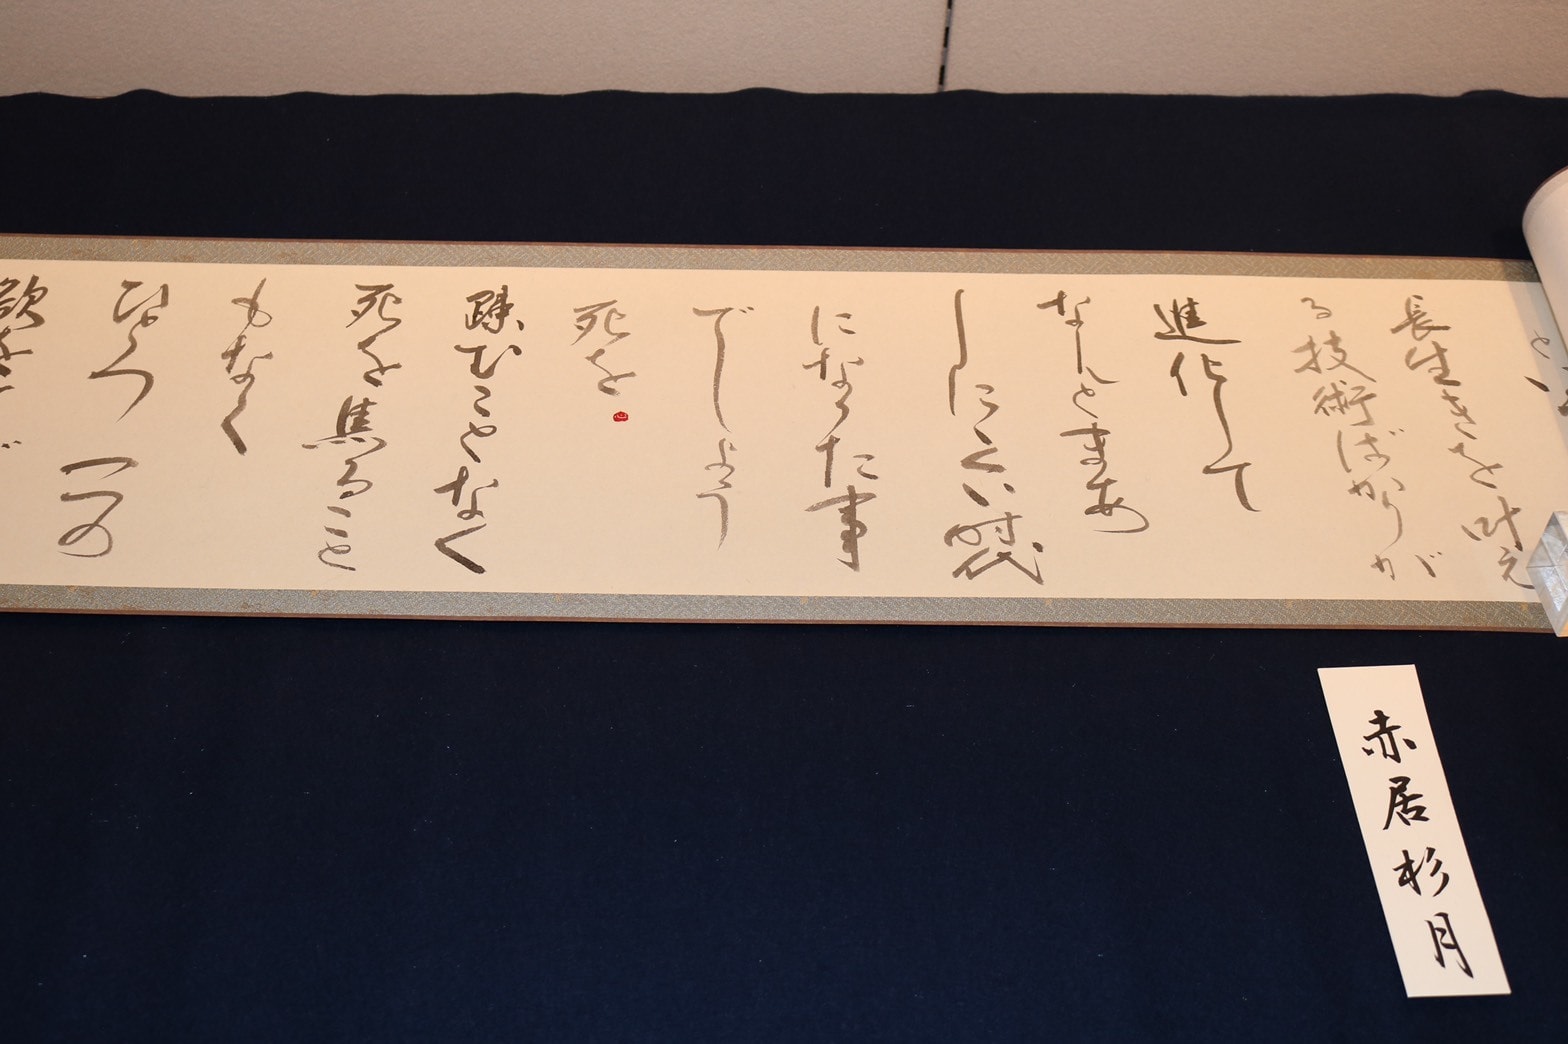 長生きを叶え
る技術ばかりが
進化して
なんとまあ
しにくい時代
になった事
でしょう
死を
踈むことなく
死を焦ること
もなく
ひとつ一つの
赤居杉月